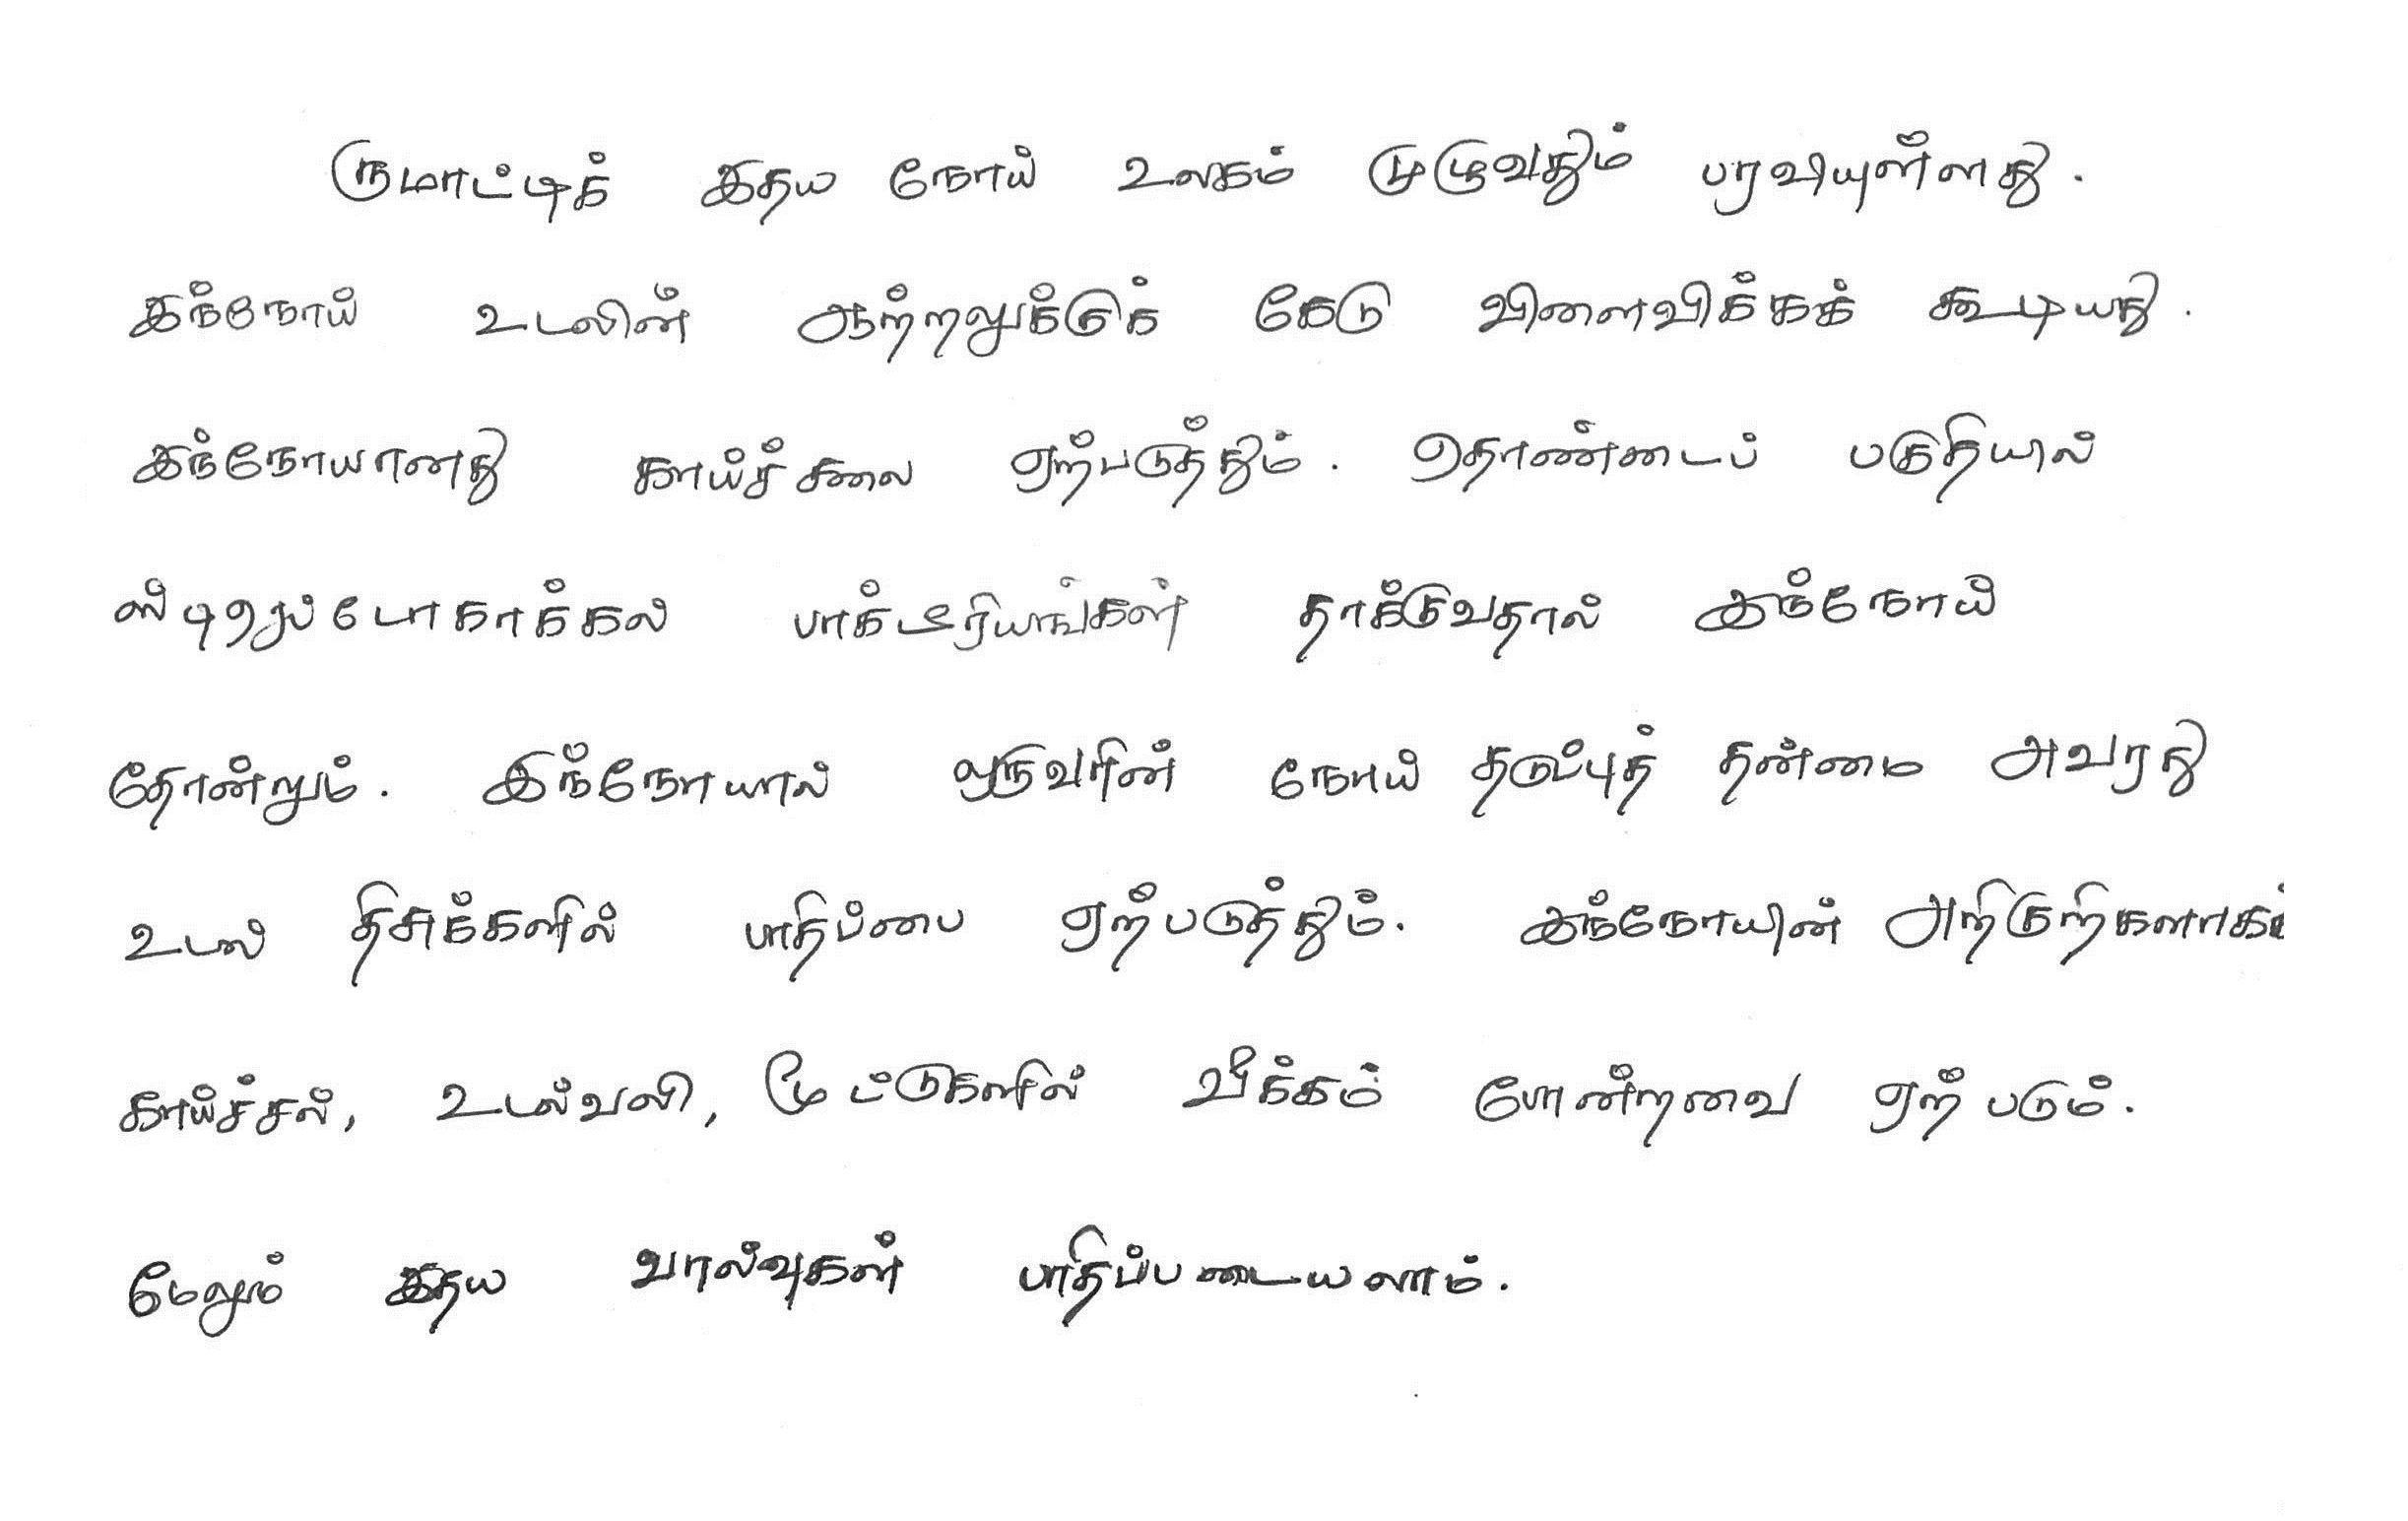 ருமாட்டிக் இதய நோய் உலகம் முழுவதும் பரவியுள்ளது.
இந்நோய் உடலின் ஆற்றலுக்குக் கேடு விளைவிக்கக் கூடியது.
இந்நோயானது காய்ச்சலை ஏற்படுத்தும். தொண்டைப் பகுதியில்
ஸ்டிரெப்டோகாக்கல் பாக்டீரியங்கள் தாக்குவதால் இந்நோய்
தோன்றும். இந்நோயால் ஒருவரின் நோய் தடுப்புத் தன்மை அவரது
உடல் திசுக்களில் பாதிப்பை ஏற்படுத்தும். இந்நோயின் அறிகுறிகளாகக்
காய்ச்சல், உடல்வலி, மூட்டுகளில் வீக்கம் போன்றவை ஏற்படும்.
மேலும் இதய வால்வுகள் பாதிப்படையலாம்.